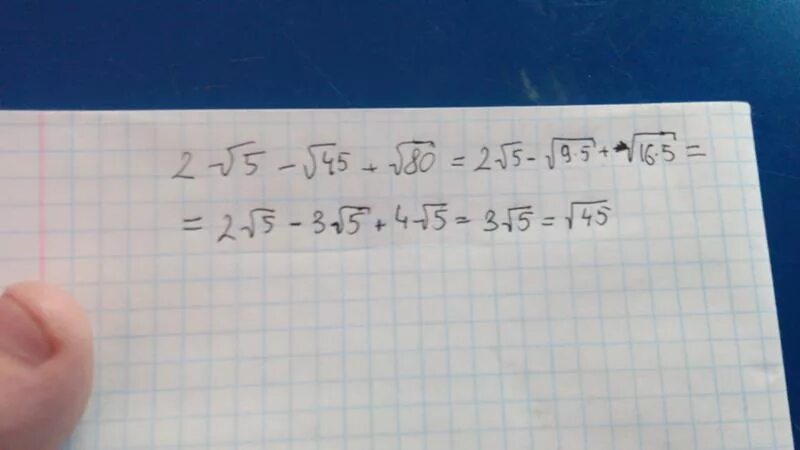 2√5 - √45 + √80 = 2√5 - √9·5 + √16·5 =
= 2√5 - 3√5 + 4√5 = 3√5 = √45